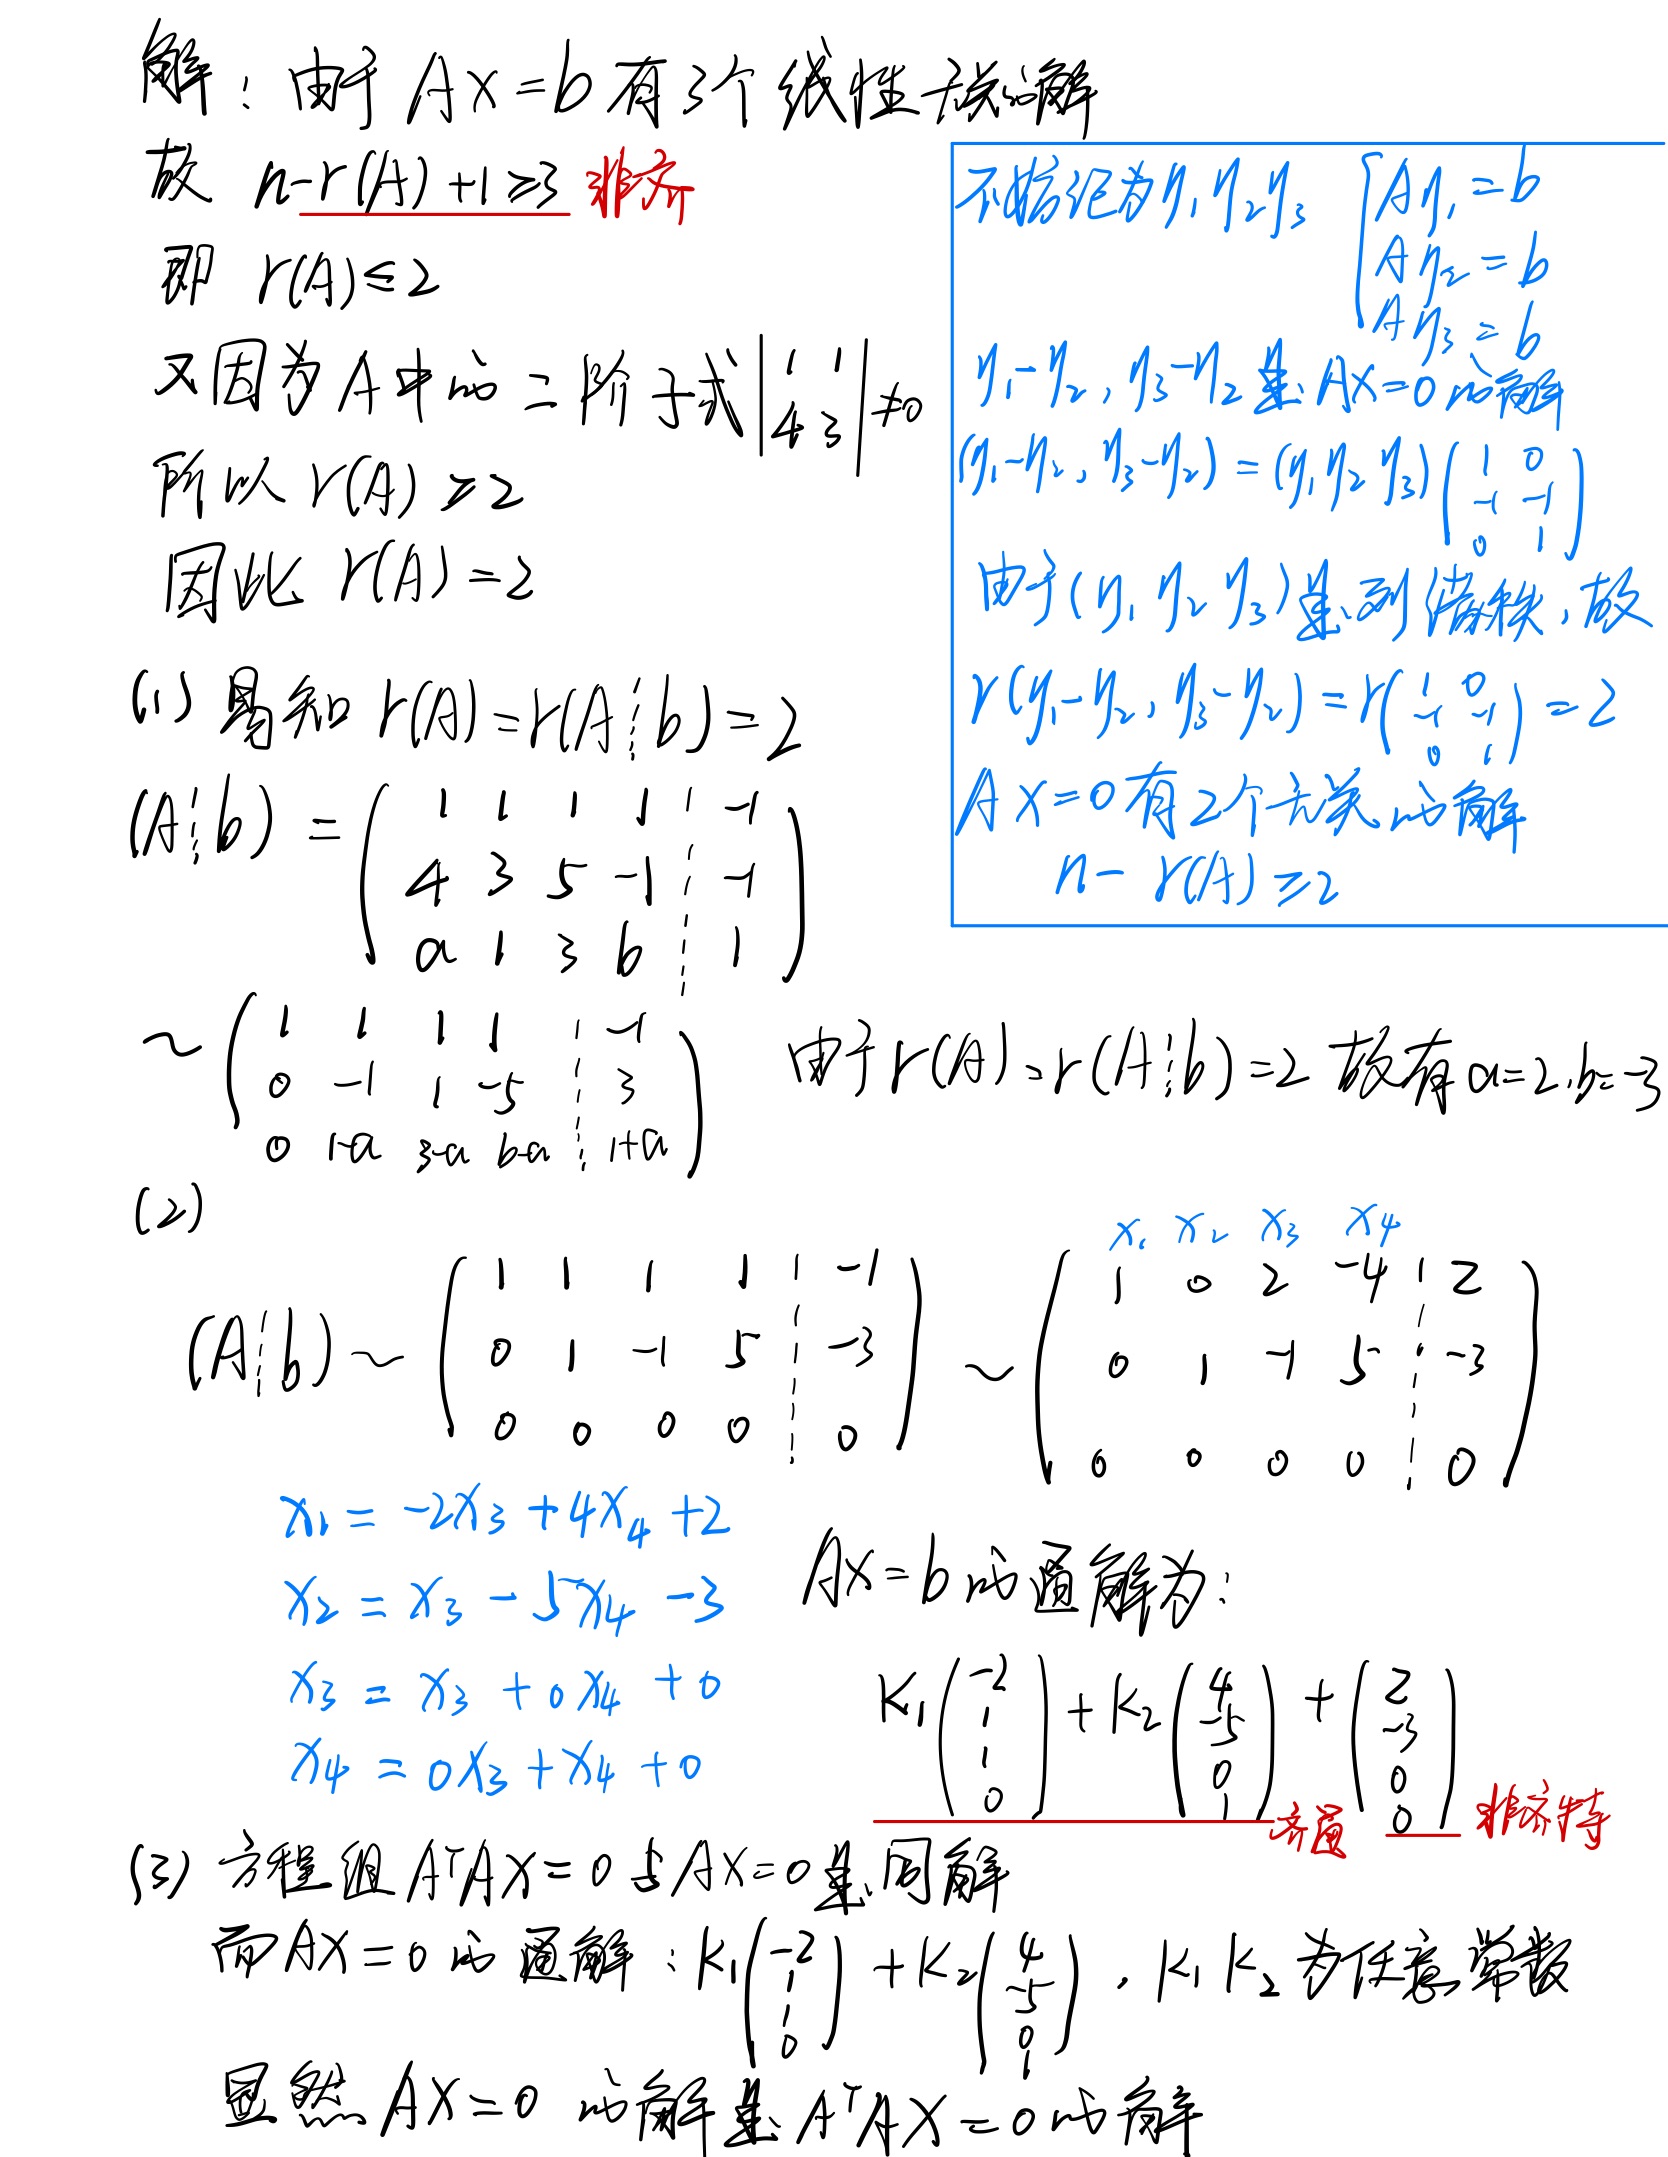 解：由于 AX=b 有3个线性无关的解
故 n-r(A)+1≥3 非齐
即 r(A)≤2
又因为 A 中的 二阶子式 |1 1; 4 3| ≠0
所以 r(A)≥2
因此 r(A)=2
不妨记为 η₁ η₂ η₃ { Aη₁=b
Aη₂=b
Aη₃=b
η₁-η₂, η₃-η₂ 是 AX=0 的解
(η₁-η₂, η₃-η₂) = (η₁ η₂ η₃) (1 0; -1 -1; 0 1)
由于 (η₁ η₂ η₃) 是列满秩, 故
r(η₁-η₂, η₃-η₂) = r(1 0; -1 -1; 0 1) = 2
AX=0 有2个无关的解
n- r(A) ≥2
(1) 易知 r(A)=r(A┆b)=2
(A┆b) = (1 1 1 1 ┆ -1
4 3 5 -1 ┆ -1
a 1 3 b ┆ 1)
~ (1 1 1 1 ┆ -1
0 -1 1 -5 ┆ 3
0 1-a 3-a b-a ┆ 1+a)
由于 r(A)=r(A┆b)=2 故有 a=2, b=-3
(2)
x₁ x₂ x₃ x₄
(A┆b) ~ (1 1 1 1 ┆ -1; 0 1 -1 5 ┆ -3; 0 0 0 0 ┆ 0) ~ (1 0 2 -4 ┆ 2; 0 1 -1 5 ┆ -3; 0 0 0 0 ┆ 0)
x₁ = -2x₃ + 4x₄ + 2
x₂ = x₃ - 5x₄ - 3
x₃ = x₃ + 0x₄ + 0
x₄ = 0x₃ + x₄ + 0
AX=b 的通解为：
K₁(-2; 1; 1; 0) + K₂(4; -5; 0; 1) + (2; -3; 0; 0)
齐通 非齐特
(3) 方程组 AᵀAX=0 与 AX=0 是同解
而 AX=0 的通解：K₁(-2; 1; 1; 0) + K₂(4; -5; 0; 1), K₁ K₂ 为任意常数
显然 AX=0 的解是 AᵀAX=0 的解